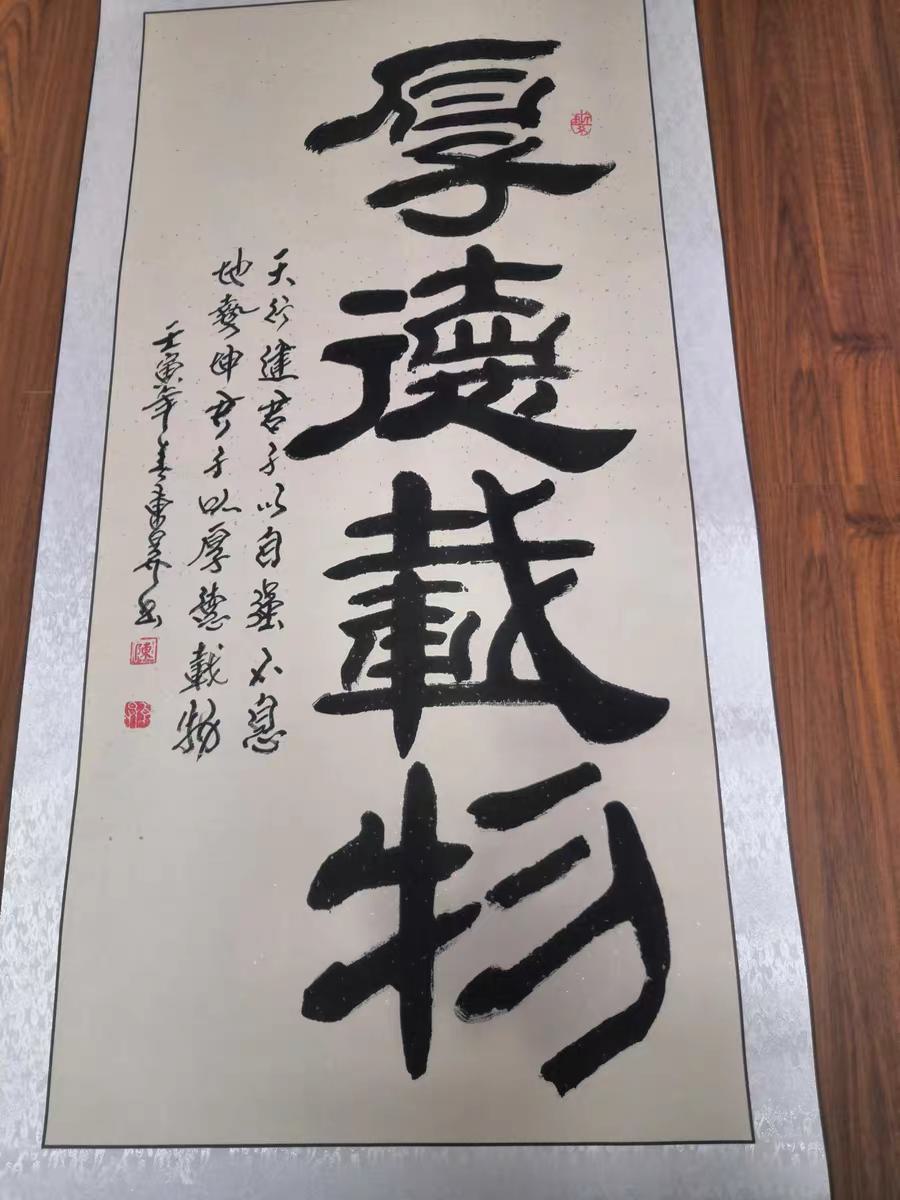 厚德載物
天行健君子以自强不息
地勢坤君子以厚德載物
壬寅年春東昇书
陳